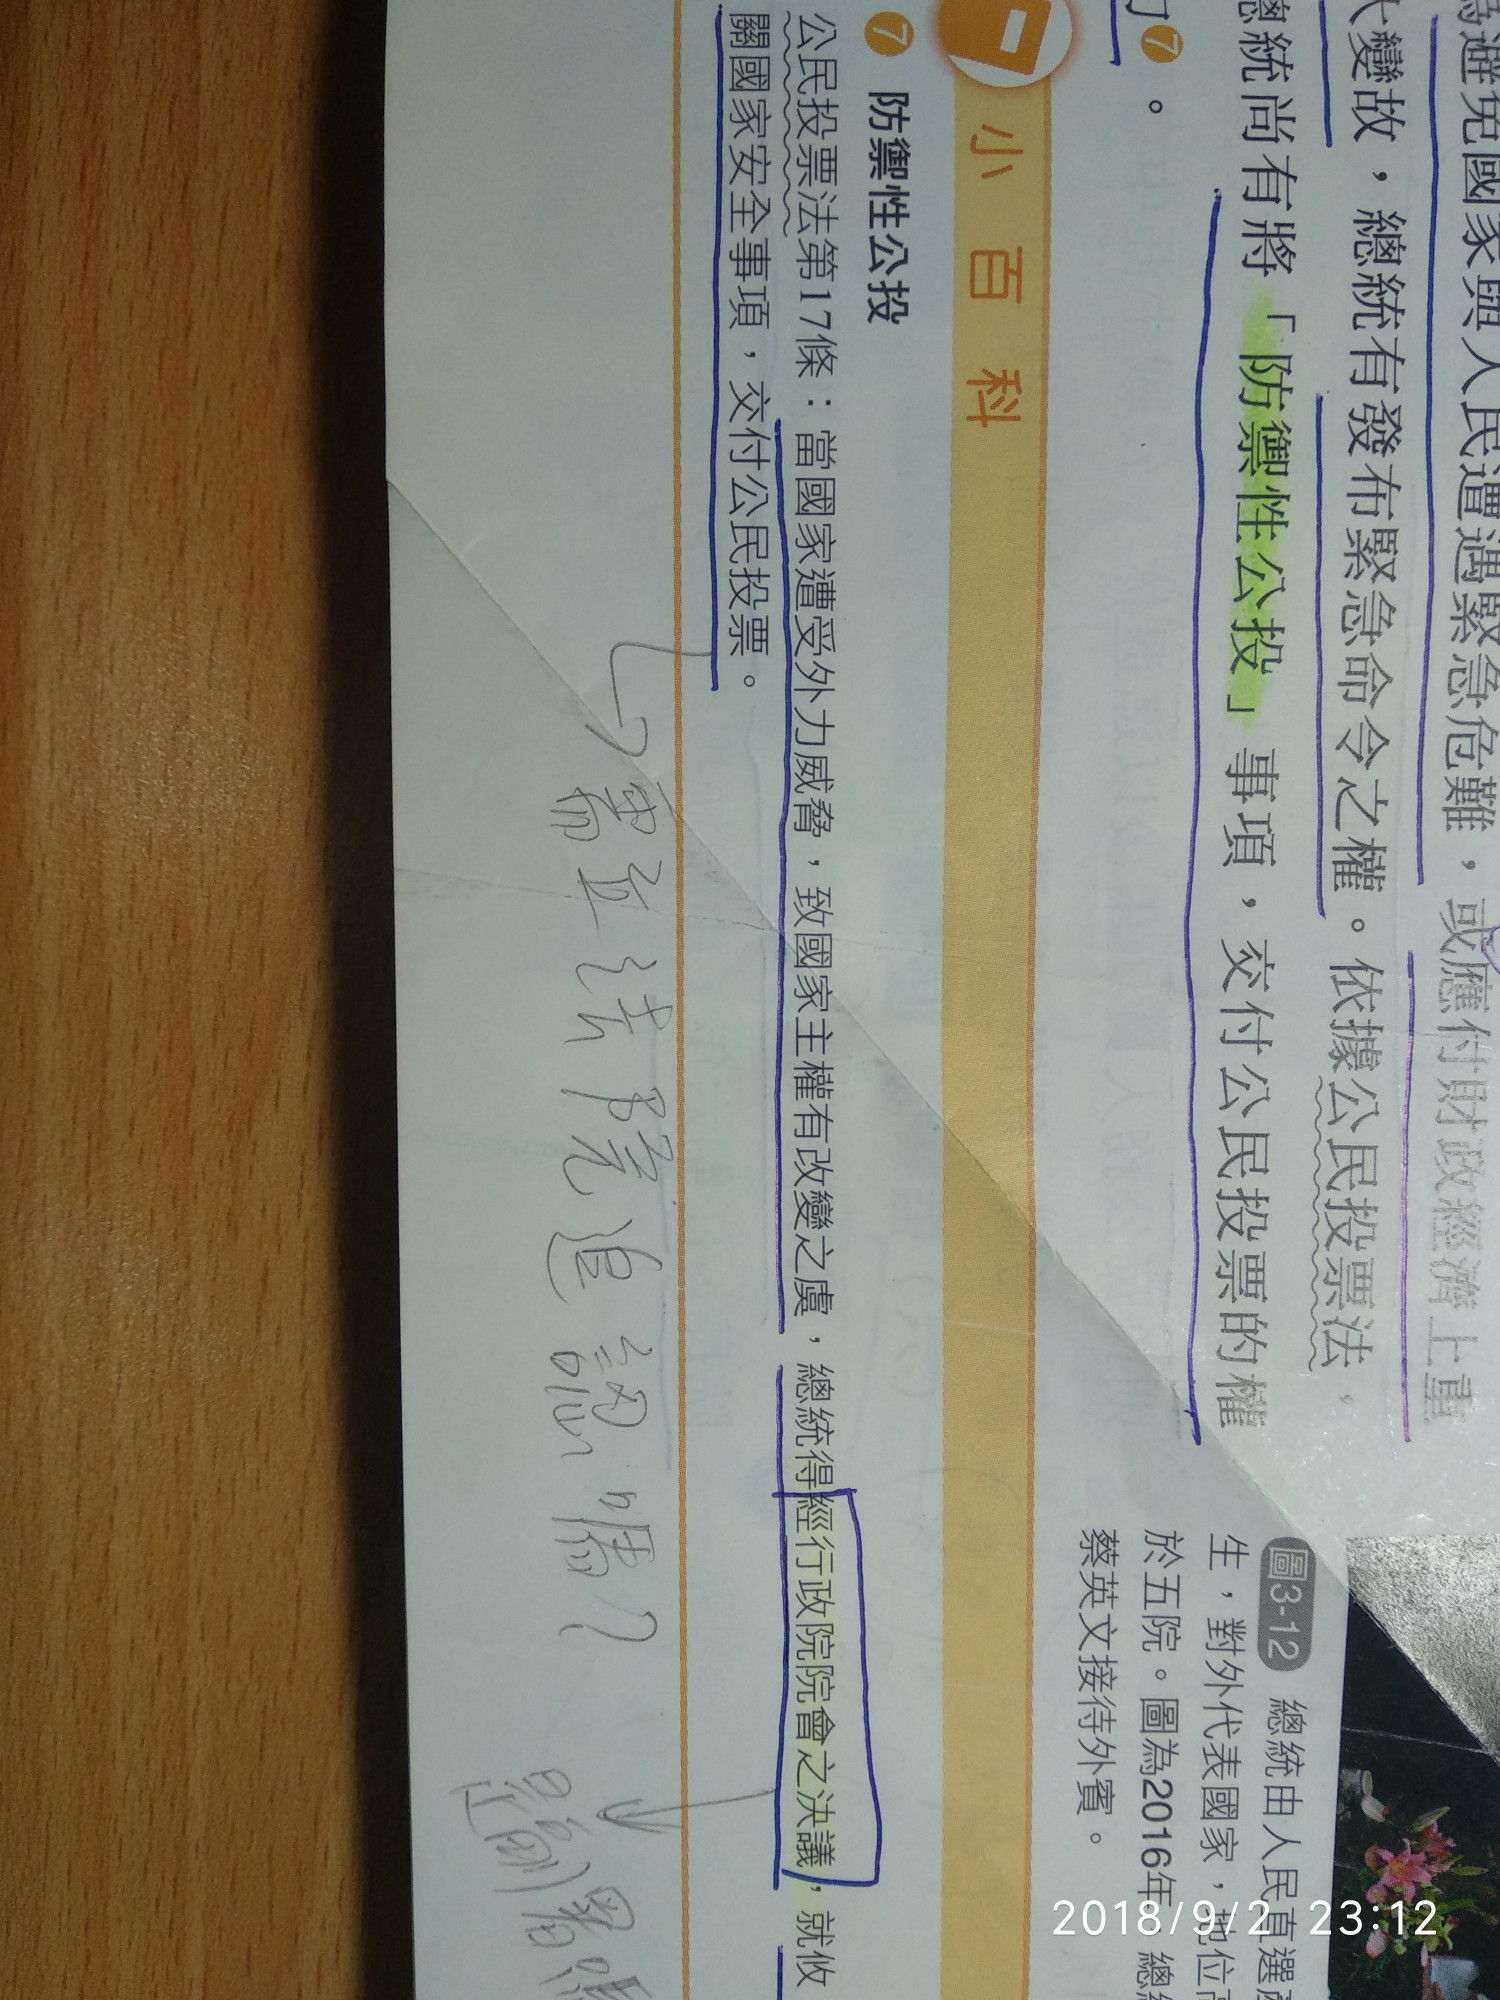 為避免國家與人民遭遇緊急危難，或應付財政經濟上重
大變故，總統有發布緊急命令之權。依據公民投票法，
總統尚有將「防禦性公投」事項，交付公民投票的權
力❼。
小百科
❼ 防禦性公投
公民投票法第17條：當國家遭受外力威脅，致國家主權有改變之虞，總統得經行政院院會之決議，就攸
關國家安全事項，交付公民投票。
需立法院追認嗎？
是副署嗎
圖3-12 總統由人民直選產
生，對外代表國家，地位高
於五院。圖為2016年，總統
蔡英文接待外賓。
2018/9/2 23:12